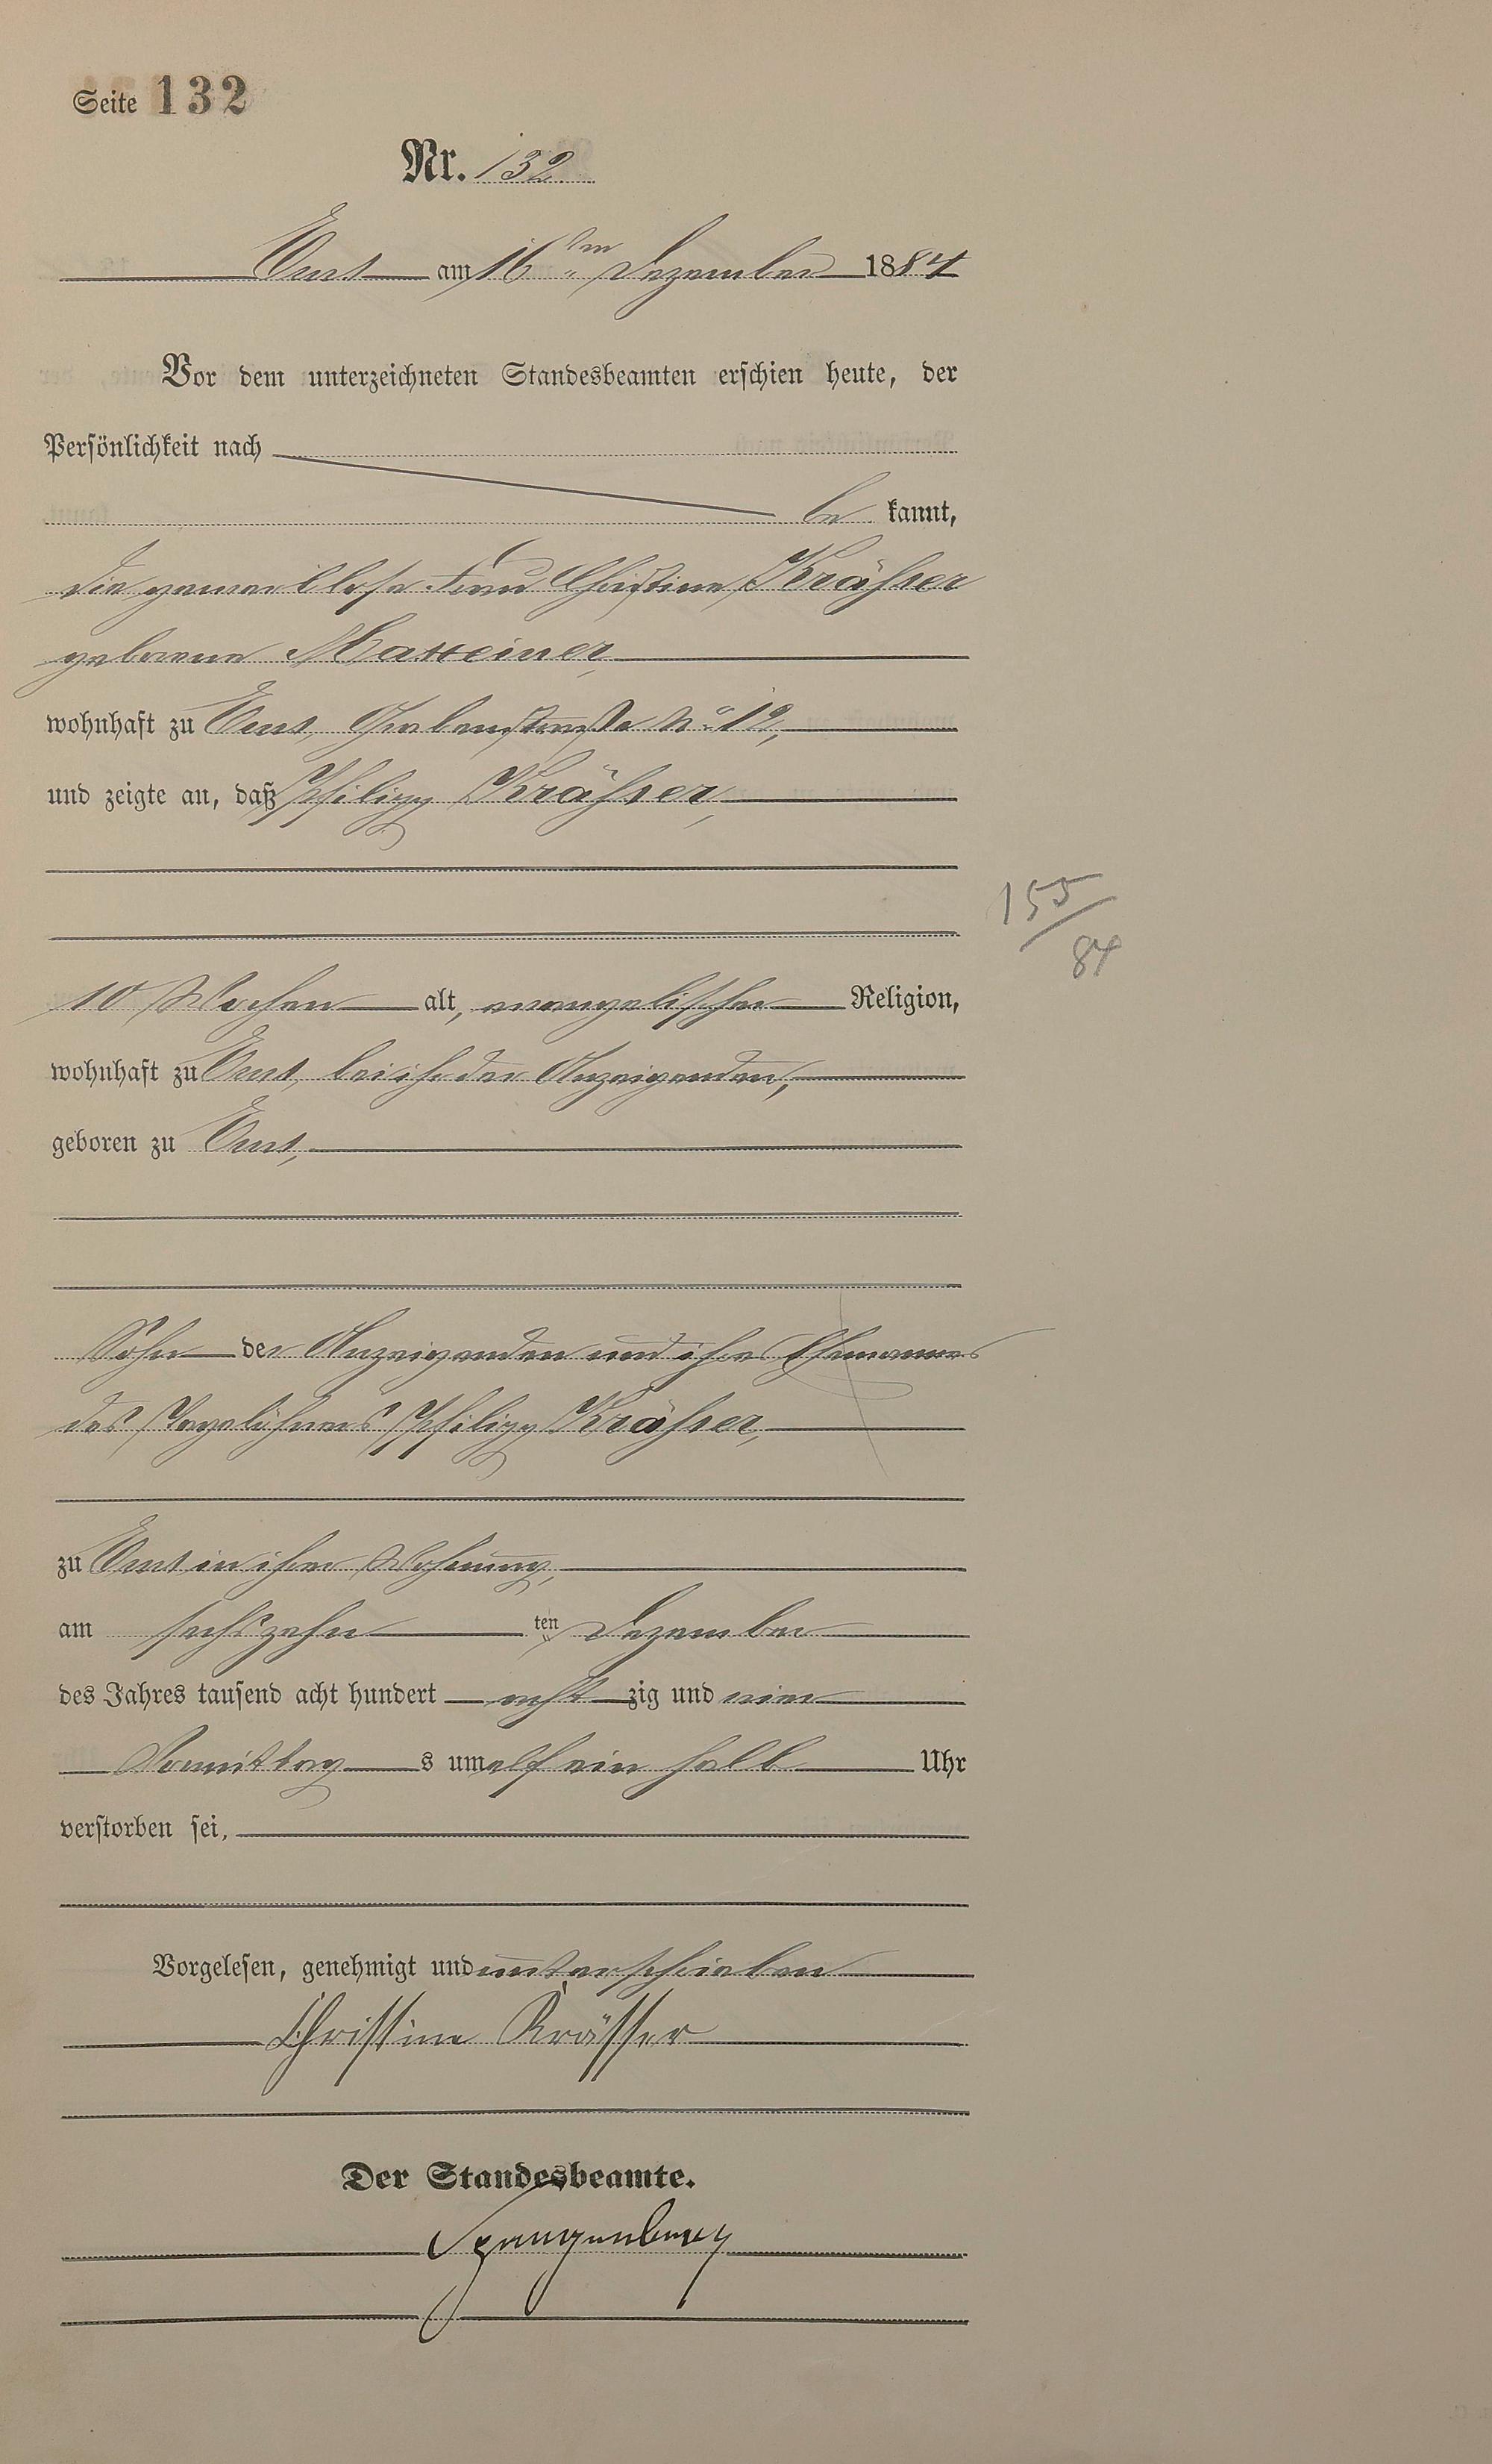 Seite 132
Nr. 132.
Ems am 16ten Dezember 1884
Vor dem unterzeichneten Standesbeamten erschien heute, der
Persönlichkeit nach
be kannt,
die gewerblose Frau Christine Kräßer
geborene Matteiner,
wohnhaft zu Ems, Grabenstraße No 12,
und zeigte an, daß Philipp Kräßer,
155/84
10 Wochen alt, evangelischer Religion,
wohnhaft zu Ems, bei ihr der Anzeigenden,
geboren zu Ems,
Sohn der Anzeigenden und ihres Ehemannes
des Tagelöhners Philipp Kräßer,
zu Ems in ihrer Wohnung,
am sechszehn ten Dezember
des Jahres tausend acht hundert acht zig und vier
Vormittag s um elf ein halb Uhr
verstorben sei.
Vorgelesen, genehmigt und unterschrieben
Christine Krässer
Der Standesbeamte.
Spangenberg